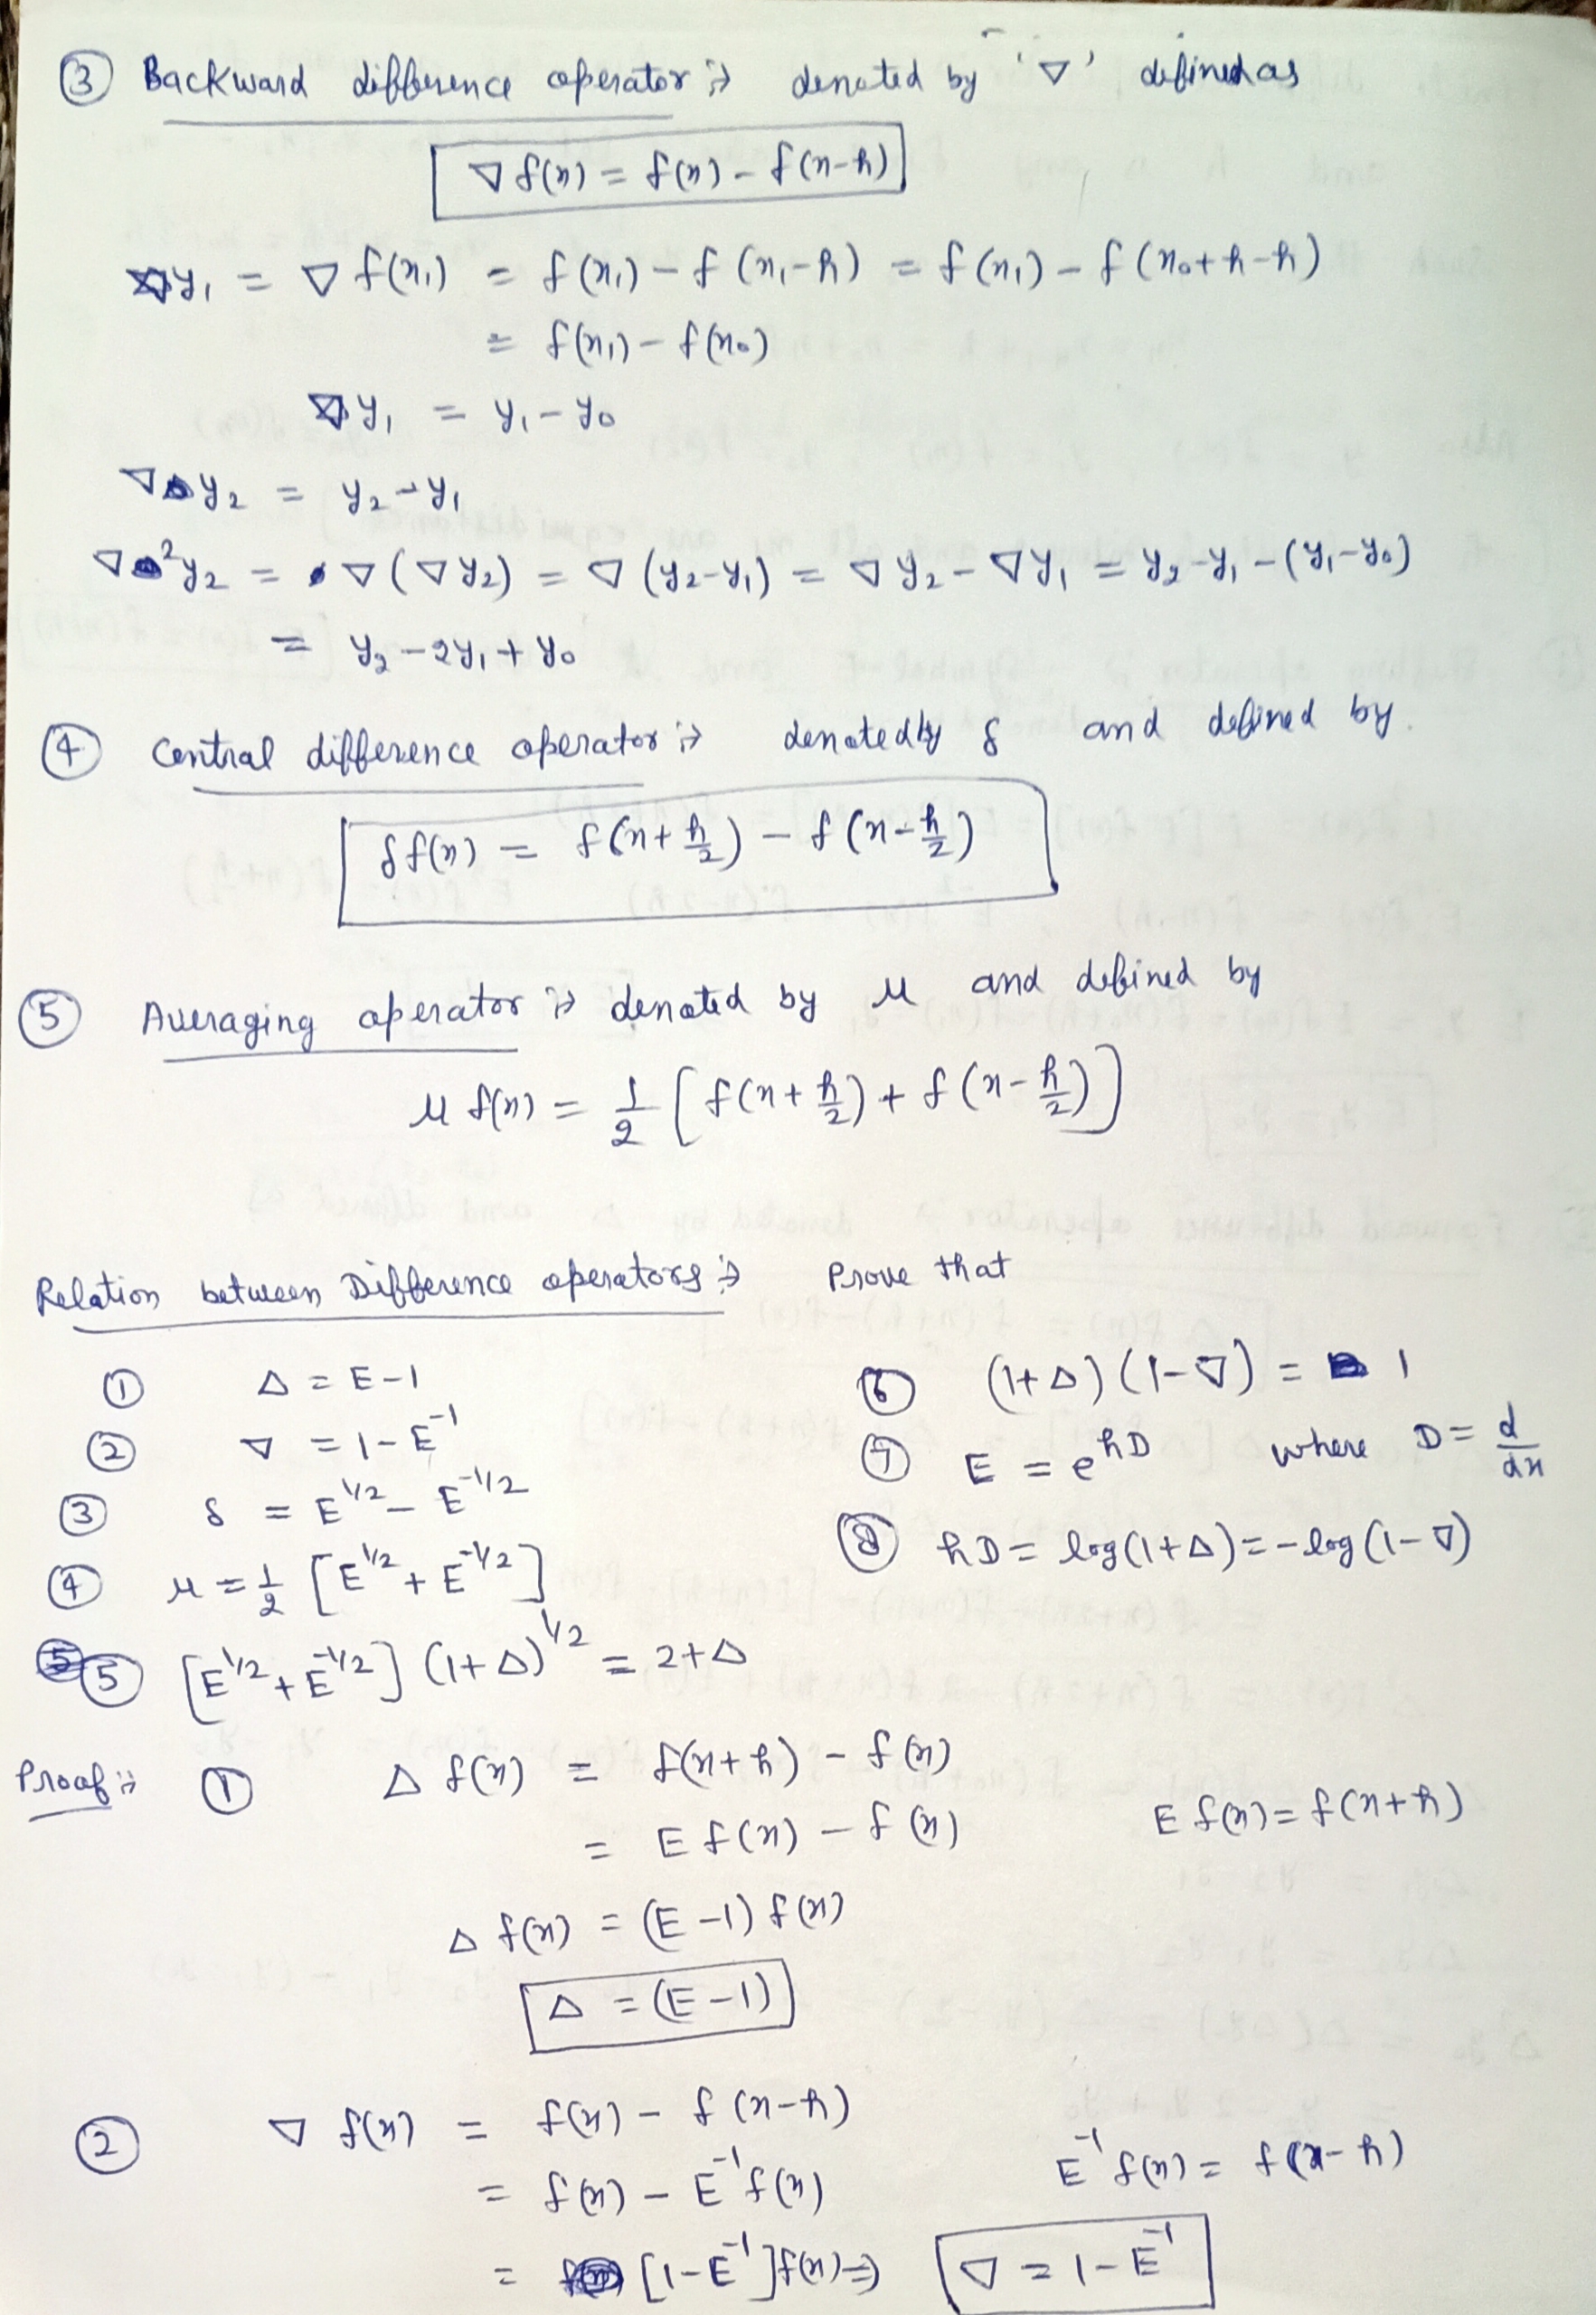 ③ Backward difference operator :→ denoted by '∇' defined as
∇ f(x) = f(x) - f(x-h)
∇y₁ = ∇ f(x₁) = f(x₁) - f(x₁-h) = f(x₁) - f(x₀+h-h)
= f(x₁) - f(x₀)
∇y₁ = y₁ - y₀
∇y₂ = y₂ - y₁
∇²y₂ = ∇(∇y₂) = ∇(y₂-y₁) = ∇y₂ - ∇y₁ = y₂-y₁ - (y₁-y₀)
= y₂ - 2y₁ + y₀
④ Central difference operator :→ denoted by δ and defined by.
δf(x) = f(x+h/2) - f(x-h/2)
⑤ Averaging operator :→ denoted by μ and defined by
μ f(x) = 1/2 [f(x+h/2) + f(x-h/2)]
Relation between Difference operators :→ Prove that
① Δ = E-1
② ∇ = 1-E⁻¹
③ δ = E^1/2 - E^-1/2
④ μ = 1/2 [E^1/2 + E^-1/2]
⑤ [E^1/2 + E^-1/2] (1+Δ)^1/2 = 2+Δ
⑥ (1+Δ)(1-∇) = 1
⑦ E = e^hD where D = d/dx
⑧ hD = log(1+Δ) = -log(1-∇)
Proof :→ ① Δ f(x) = f(x+h) - f(x)
= E f(x) - f(x) E f(x) = f(x+h)
Δ f(x) = (E-1) f(x)
Δ = (E-1)
② ∇ f(x) = f(x) - f(x-h)
= f(x) - E⁻¹f(x) E⁻¹ f(x) = f(x-h)
= [1-E⁻¹]f(x) ⇒ ∇ = 1-E⁻¹